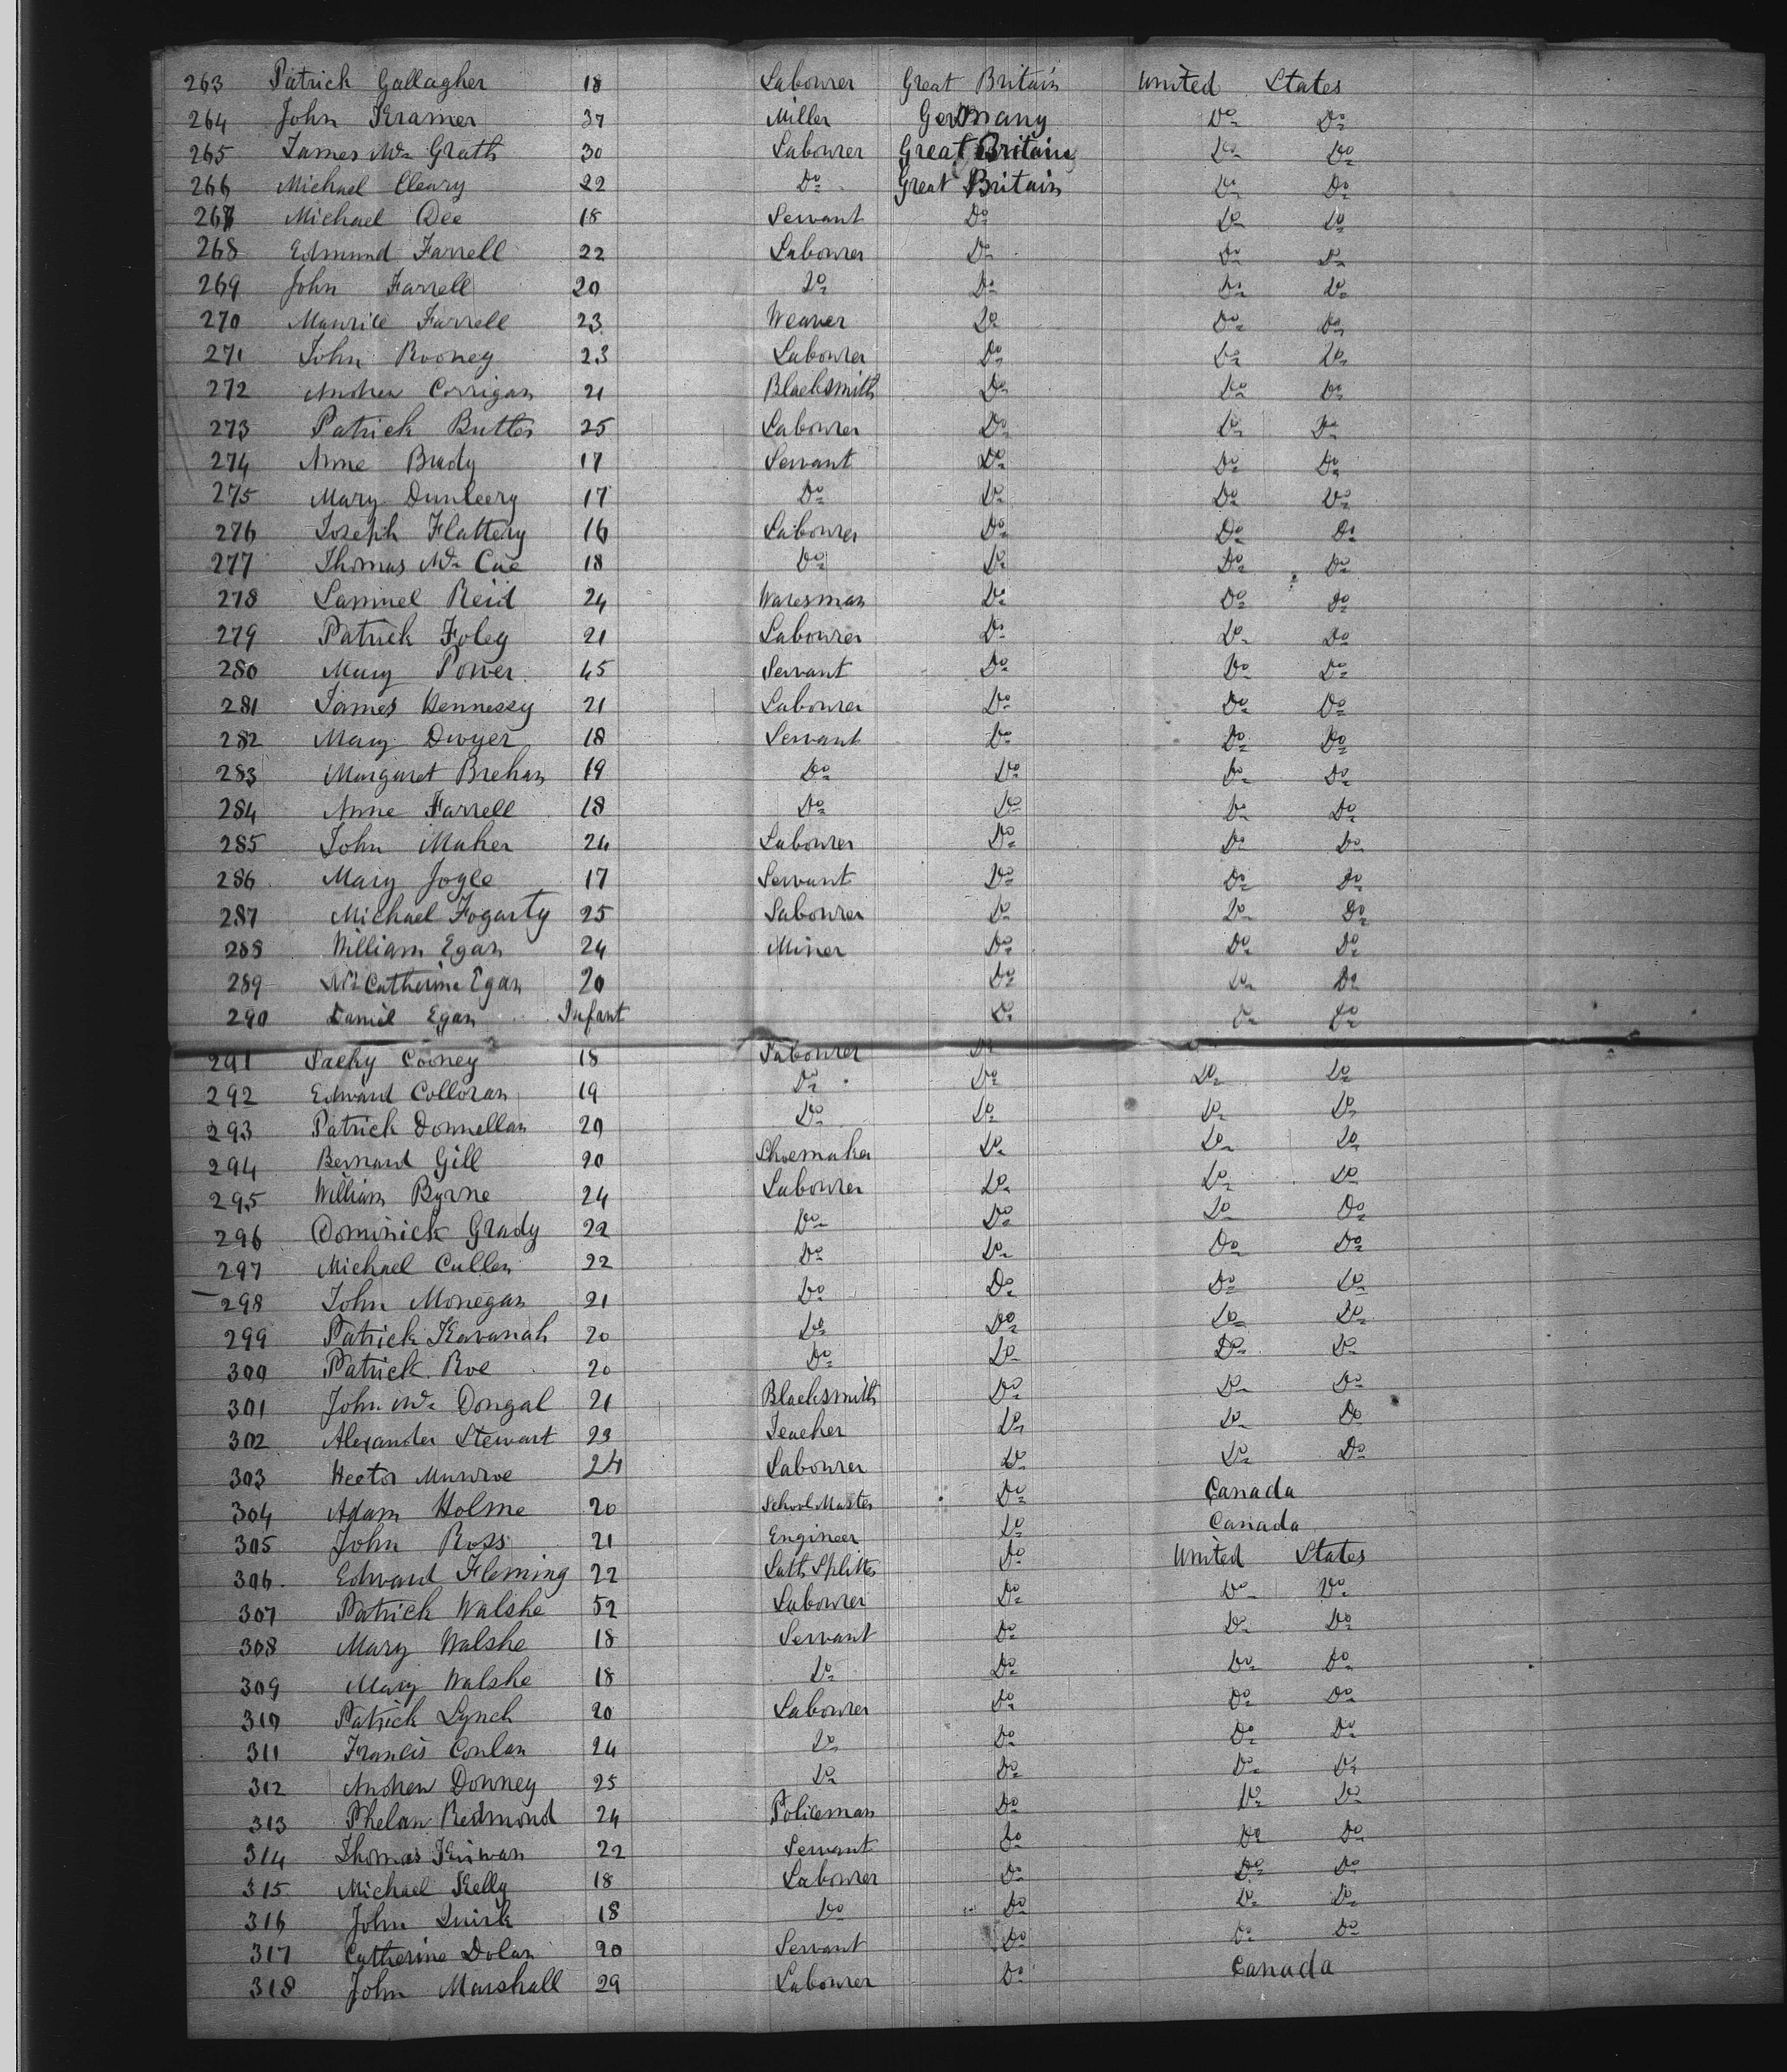 263 Patrick Gallagher 18 Labourer Great Britain United States
264 John Kramer 37 Miller Germany Do Do
265 James Mc Grath 30 Labourer Great Britain Do Do
266 Michael Cleary 22 Do Great Britain Do Do
267 Michael Dee 18 Servant Do Do Do
268 Edmund Farrell 22 Labourer Do Do Do
269 John Farrell 20 Do Do Do Do
270 Maurice Farrell 23 Weaver Do Do Do
271 John Rooney 23 Labourer Do Do Do
272 Andrew Corrigan 21 Blacksmith Do Do Do
273 Patrick Butler 25 Labourer Do Do Do
274 Anne Brady 17 Servant Do Do Do
275 Mary Dunleery 17 Do Do Do Do
276 Joseph Flattery 16 Labourer Do Do Do
277 Thomas Mc Cue 18 Do Do Do Do
278 Samuel Reid 24 Waresman Do Do Do
279 Patrick Foley 21 Labourer Do Do Do
280 Mary Power 45 Servant Do Do Do
281 James Hennessy 21 Labourer Do Do Do
282 Mary Dwyer 18 Servant Do Do Do
283 Margaret Brehan 19 Do Do Do Do
284 Anne Farrell 18 Do Do Do Do
285 John Maher 24 Labourer Do Do Do
286 Mary Jogle 17 Servant Do Do Do
287 Michael Fogarty 25 Labourer Do Do Do
288 William Egan 24 Miner Do Do Do
289 Mrs Catherine Egan 20 Do Do Do
290 Daniel Egan Infant Do Do Do
291 Cooney 18 Labourer Do
292 Edward Colloran 19 Do Do Do Do
293 Patrick Donnellan 20 Do Do Do Do
294 Bernard Gill 20 Shoemaker Do Do Do
295 William Byrne 24 Labourer Do Do Do
296 Dominick Grady 22 Do Do Do Do
297 Michael Cullen 22 Do Do Do Do
298 John Monegan 21 Do Do Do Do
299 Patrick Kavanah 20 Do Do Do Do
300 Patrick Roe 20 Do Do Do Do
301 John Mc Dongal 21 Blacksmith Do Do Do
302 Alexander Stewart 23 Teacher Do Do Do
303 Hector Munroe 24 Labourer Do Do Do
304 Adam Holme 20 School Master Do Canada
305 John Ross 21 Engineer Do Canada
306 Edward Fleming 22 Lath Splitter Do United States
307 Patrick Walshe 52 Labourer Do Do Do
308 Mary Walshe 18 Servant Do Do Do
309 Mary Walshe 18 Do Do Do Do
310 Patrick Lynch 20 Labourer Do Do Do
311 Francis Conlan 24 Do Do Do Do
312 Andrew Downey 25 Do Do Do Do
313 Phelan Redmond 24 Policeman Do Do Do
314 Thomas Kirwan 22 Servant Do Do Do
315 Michael Kelly 18 Labourer Do Do Do
316 John Quirk 18 Do Do Do Do
317 Catherine Dolan 20 Servant Do Do Do
318 John Marshall 29 Labourer Do Canada